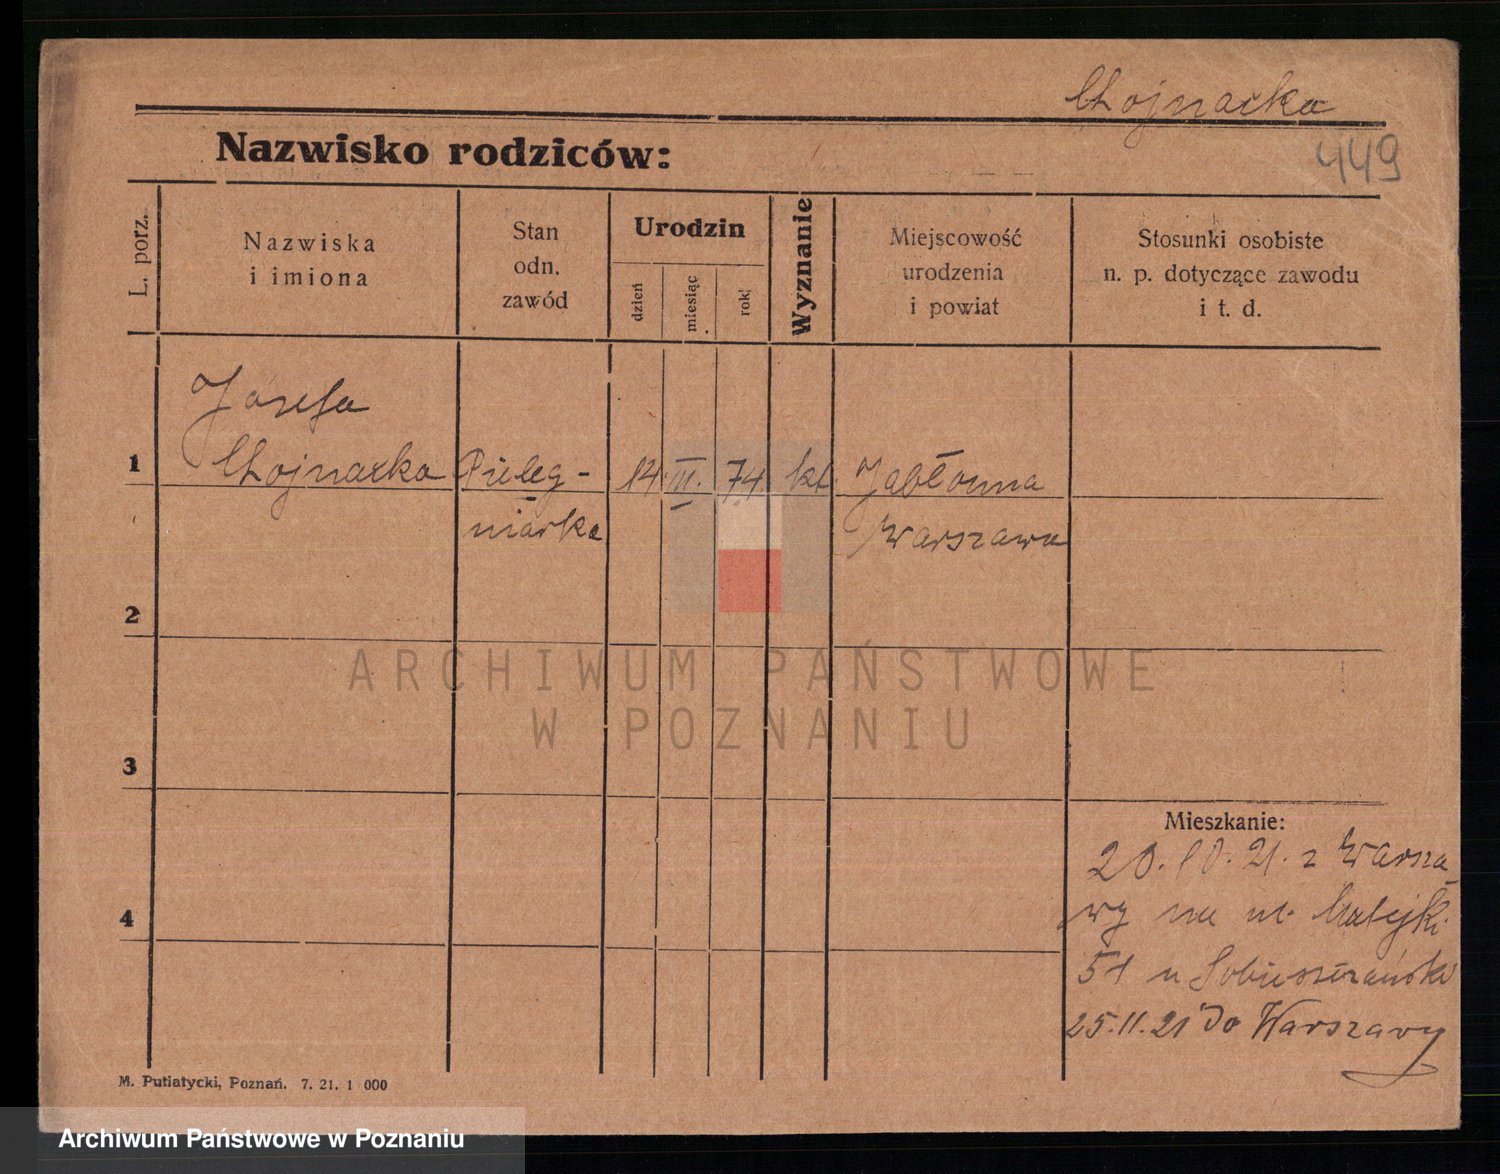 Chojnacka
449
Nazwisko rodziców:
L. porz.
Nazwiska
i imiona
Stan
odn.
zawód
Urodzin
dzień
miesiąc
rok
Wyznanie
Miejscowość
urodzenia
i powiat
Stosunki osobiste
n. p. dotyczące zawodu
i t. d.
Józefa
1 Chojnacka Pieleg- 14. III. 74. kt. Jabłonna
niarka Warszawa
2
3
4
Mieszkanie:
20.10.21. z Warsza-
wy na ul. Matejki
51 u
25.11.21 do Warszawy
M. Putiatycki, Poznań. 7. 21. 1 000
ARCHIWUM PAŃSTWOWE
W POZNANIU
Archiwum Państwowe w Poznaniu